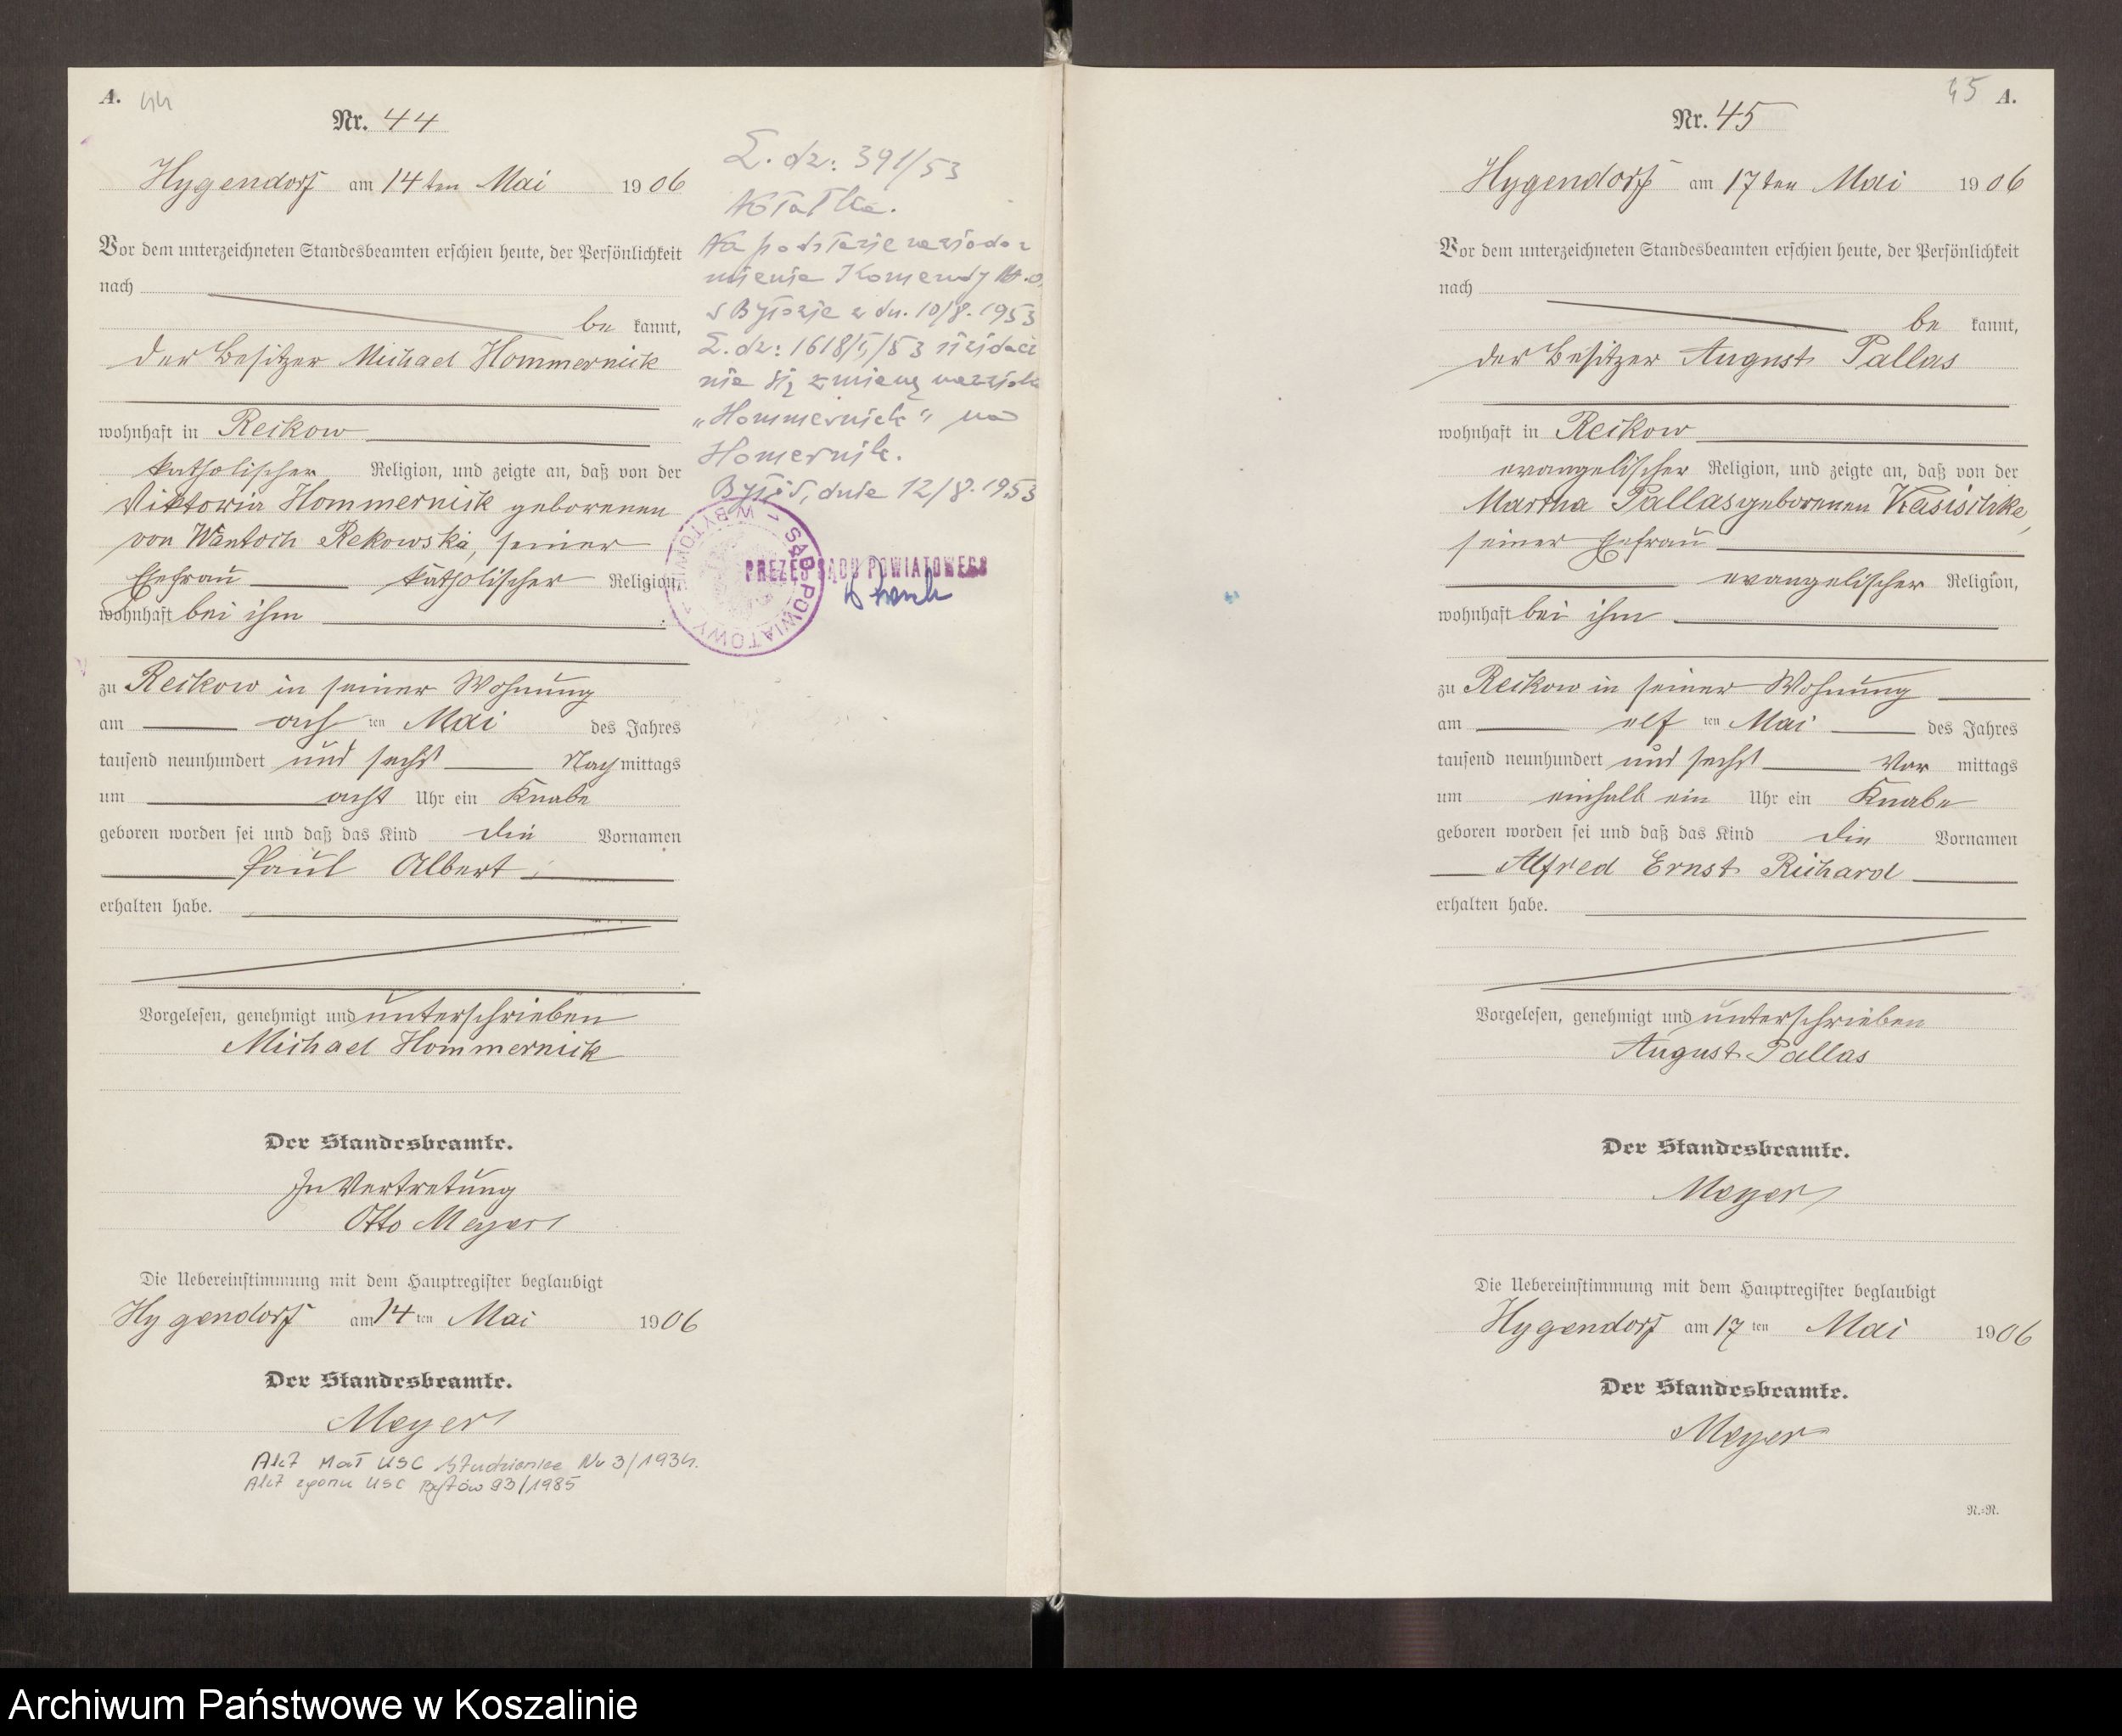 A. 44
Nr. 44
Hygendorf am 14ten Mai 1906
Vor dem unterzeichneten Standesbeamten erschien heute, der Persönlichkeit
nach
be kannt,
der Besitzer Michael Hommernick
wohnhaft in Reikow
katholischer Religion, und zeigte an, daß von der
Viktoria Hommernick geborenen
von Wantoch Rekowski, seiner
Ehefrau katholischer Religion,
wohnhaft bei ihm
zu Reikow in seiner Wohnung
am acht ten Mai des Jahres
tausend neunhundert und sechs Nachmittags
um acht Uhr ein Knabe
geboren worden sei und daß das Kind die Vornamen
Paul Albert
erhalten habe.
Vorgelesen, genehmigt und unterschrieben
Michael Hommernick
Der Standesbeamte.
In Vertretung
Otto Meyer
Die Uebereinstimmung mit dem Hauptregister beglaubigt
Hygendorf am 14ten Mai 1906
Der Standesbeamte.
Meyer
Akt mał USC Studzienice Nr 3/1934.
Akt zgonu USC Bytów 93/1985
L. dz: 391/53
Notatka.
Na podstawie
Komendy M.O.
w Bytowie z dn. 10/8. 1953
L. dz: 1618/
nie się zmienę nazwiska
„Hommernick" na
Homernik.
Bytów, dnia 12/8. 1953
SĄD POWIATOWY W BYTOWIE
PREZES SĄDU POWIATOWEGO
45 A.
Nr. 45
Hygendorf am 17ten Mai 1906
Vor dem unterzeichneten Standesbeamten erschien heute, der Persönlichkeit
nach
be kannt,
der Besitzer August Pallas
wohnhaft in Reikow
evangelischer Religion, und zeigte an, daß von der
Martha Pallas geborenen Kasischke,
seiner Ehefrau
evangelischer Religion,
wohnhaft bei ihm
zu Reikow in seiner Wohnung
am elf ten Mai des Jahres
tausend neunhundert und sechs Vor mittags
um einhalb ein Uhr ein Knabe
geboren worden sei und daß das Kind die Vornamen
Alfred Ernst Richard
erhalten habe.
Vorgelesen, genehmigt und unterschrieben
August Pallas
Der Standesbeamte.
Meyer
Die Uebereinstimmung mit dem Hauptregister beglaubigt
Hygendorf am 17 ten Mai 1906
Der Standesbeamte.
Meyer
N.=N.
Archiwum Państwowe w Koszalinie